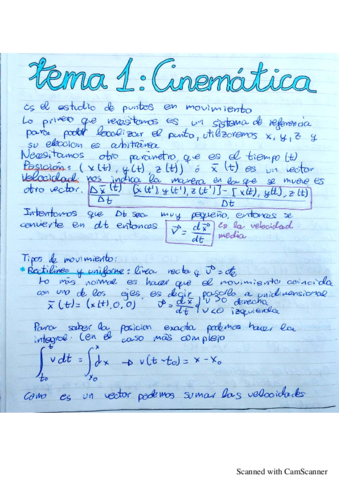 tema 1: Cinemática
es el estudio de puntos en movimiento
Lo primero que necesitamos es un sistema de referencia
para poder localizar el punto, utilizaremos x, y, z y
su eleccion es arbitraria
Necesitamos otro parámetro, que es el tiempo (t)
Posición: (x(t), y(t), z(t)) ó x̄(t) es un vector
Velocidad nos indica la manera en la que se mueve es
otro vector. Δx̄(t) / Δt (x(t'), y(t'), z(t')) - [x(t), y(t), z(t)] / Δt
Intentamos que Δt sea muy pequeño, entonces se
convierte en dt entonces v⃗ = dx̄/dt es la velocidad
media
Tipos de movimiento:
Rectilineo y uniforme: linea recta y v⃗ = cte
Lo más normal es hacer que el movimiento coincida
con uno de los ejes, es decir, pasarlo a unidimensional
x̄(t) = (x(t), 0, 0) v⃗ = dx/dt v>0 derecha
v<0 izquierda
Para saber la posicion exacta podemos hacer la
integral: (en el caso más complejo
∫t₀ᵗ v dt = ∫x₀ˣ dx → v(t-t₀) = x-x₀
Como es un vector podemos sumar las velocidades
Scanned with CamScanner